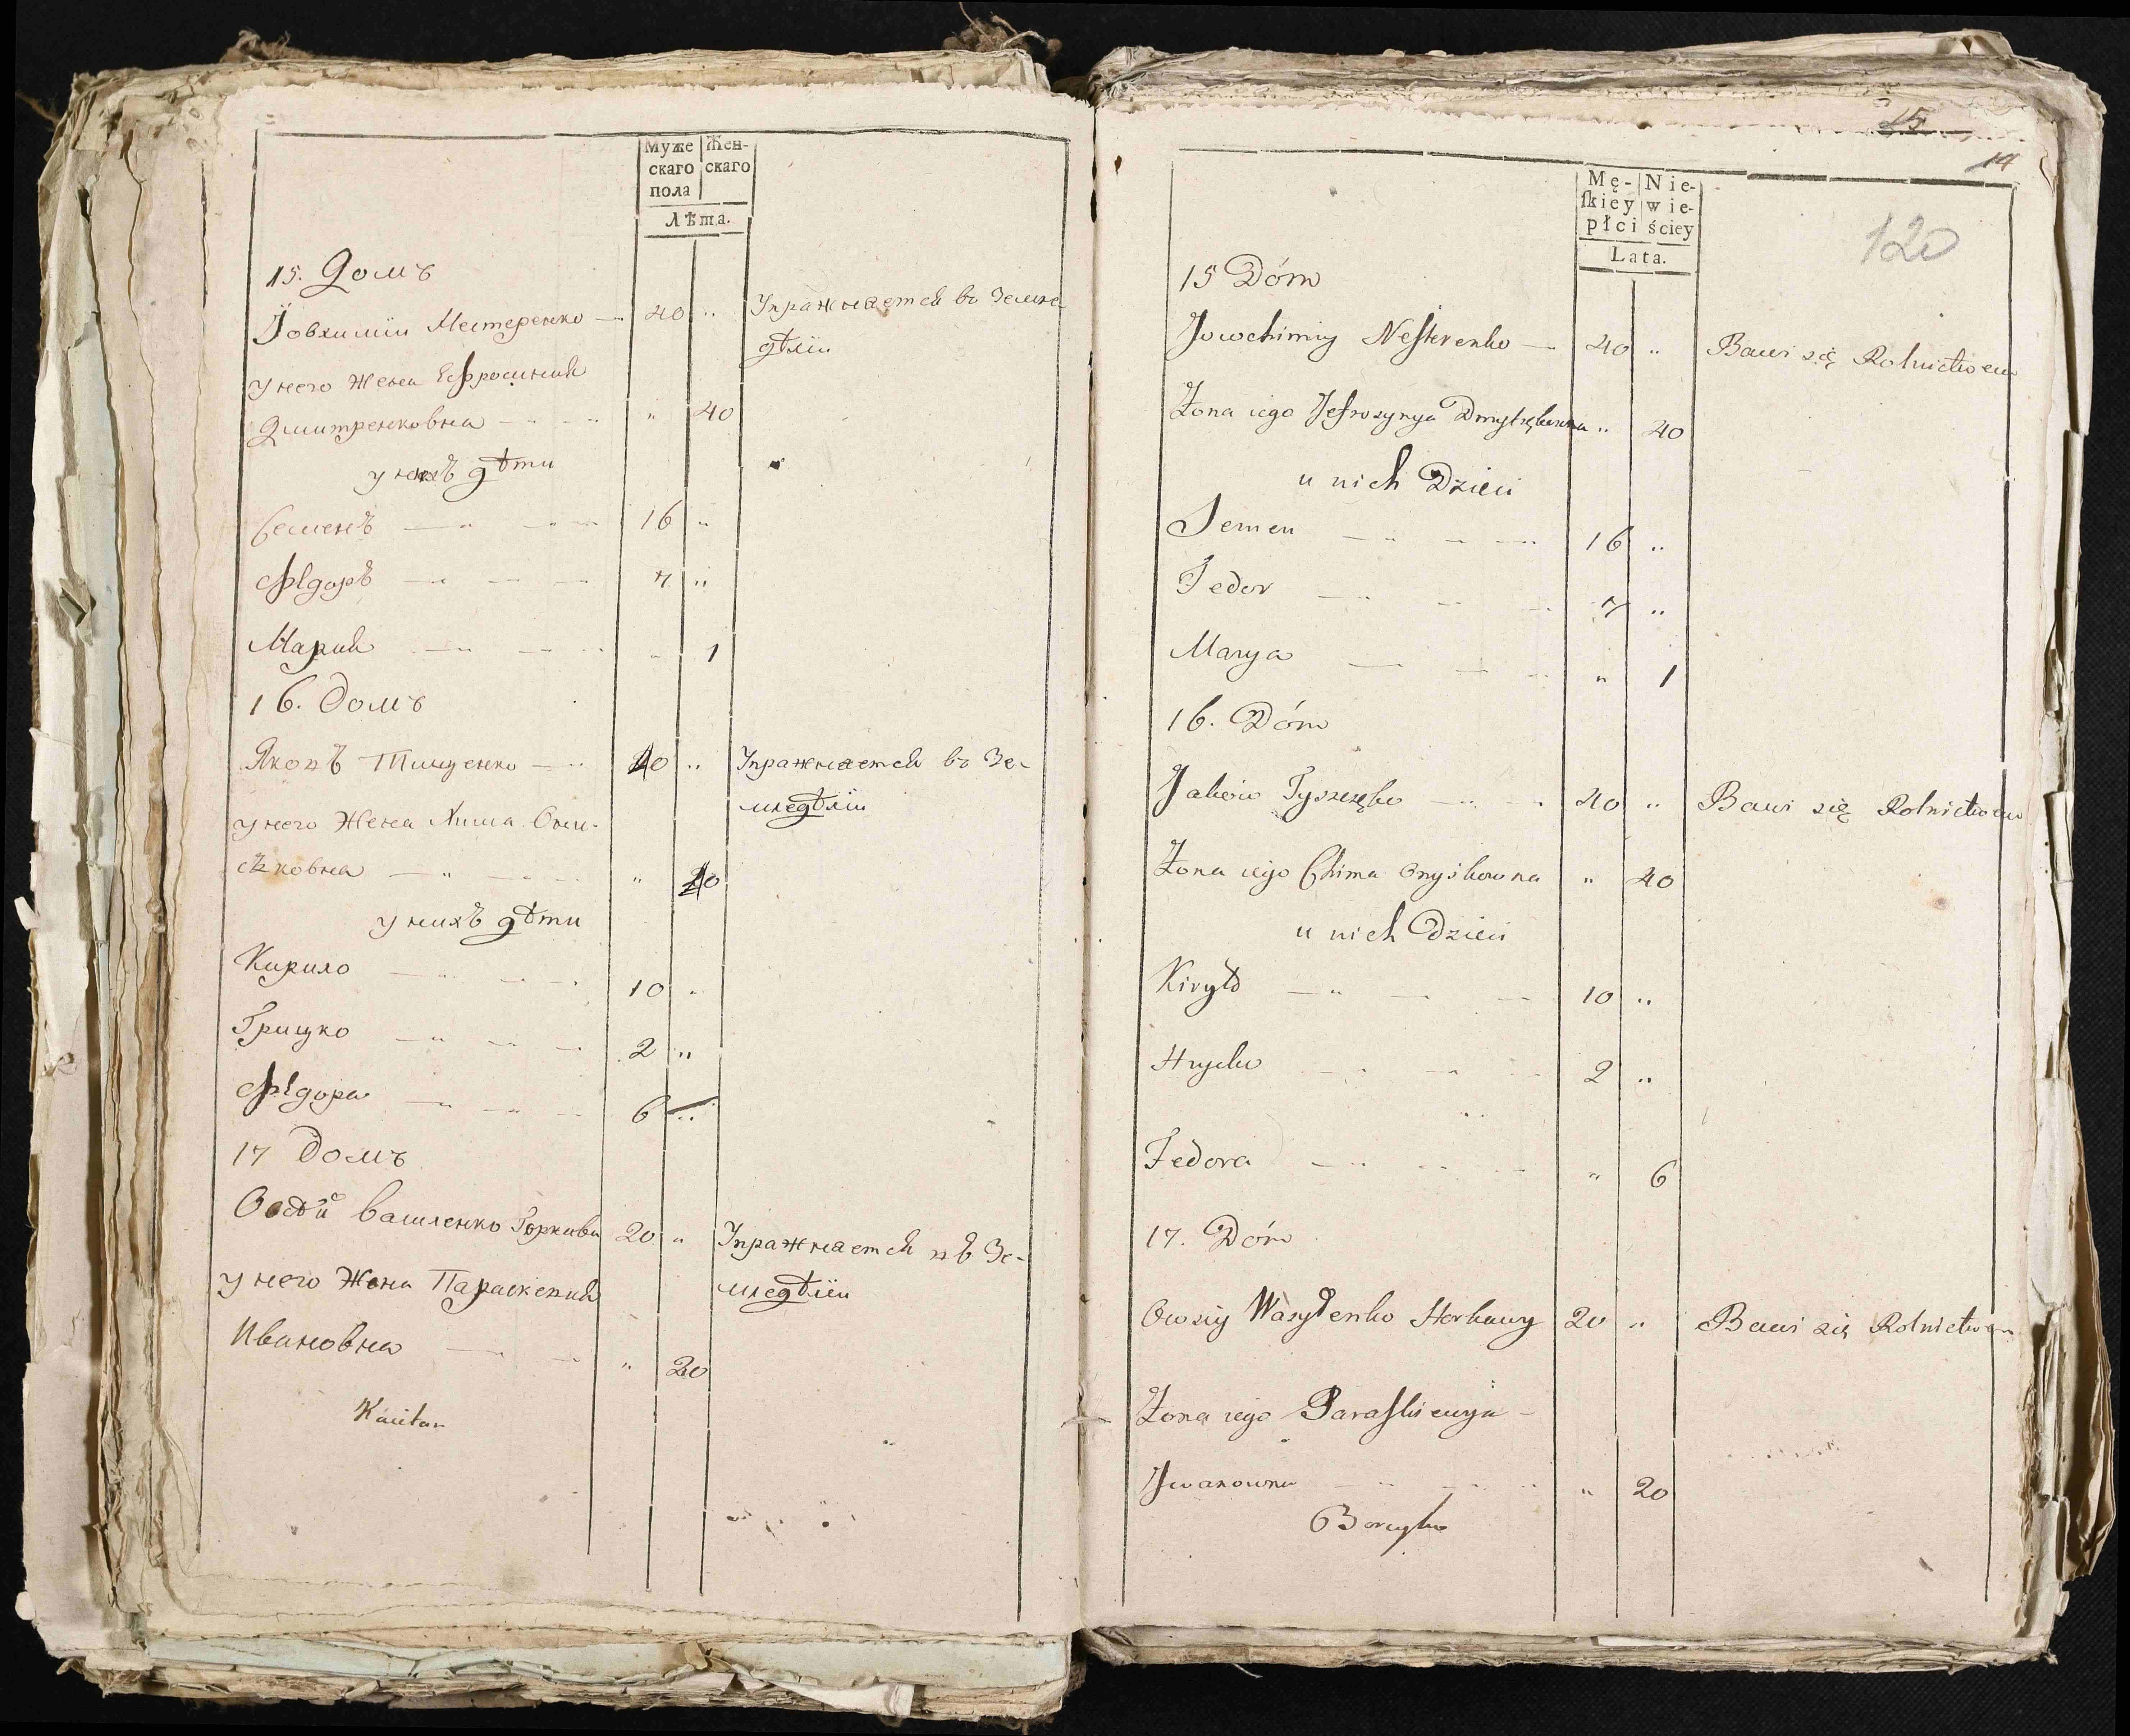 Муже Жен-
скаго скаго
пола
Лѣта.
15. Домъ
Ӥовхимїи Нестеренко 40 „ Упражняется въ Земле-
дѣлїи
у него Жена Ефросиния
Дмитренковна „ 40
у нихъ дѣти
Семенъ 16 „
Ѳедоръ 7 „
Мария „ 1
16. Домъ
Яковъ Тищенко 40 „ Упражняется въ Зе-
мледѣлїи
у него Жена Хима Они-
сѣковна „ 40
у нихъ дѣти
Кирило 10 „
Грицко 2 „
Ѳедора 6 „
17 Домъ
Овсѣй Василенко Горкавы 20 „ Упражняется въ Зе-
мледѣлїи
у него Жена Параскевия
Ивановна „ 20
15
14
120
Mę- Nie-
ſkiey wie-
płci ściey
Lata.
15 Dóm
Jowchimiy Neſterenko 40 „ Bawi się Rolnictwem
Żona iego Jefrozynya „ 40
u nich Dzieci
Semen 16 „
Fedor 7 „
Marya „ 1
16. Dóm
Jakow Tyszczęko 40 „ Bawi się Rolnictwem
Żona iego Chima Onyśkowna „ 40
u nich Dzieci
Kiryło 10 „
Hryćko 2 „
Fedora „ 6
17. Dóm
Owsiy Wasylenko Horkawy 20 „ Bawi się Rolnictwem
Żona iego Paraſkiewya
Jwanowna „ 20